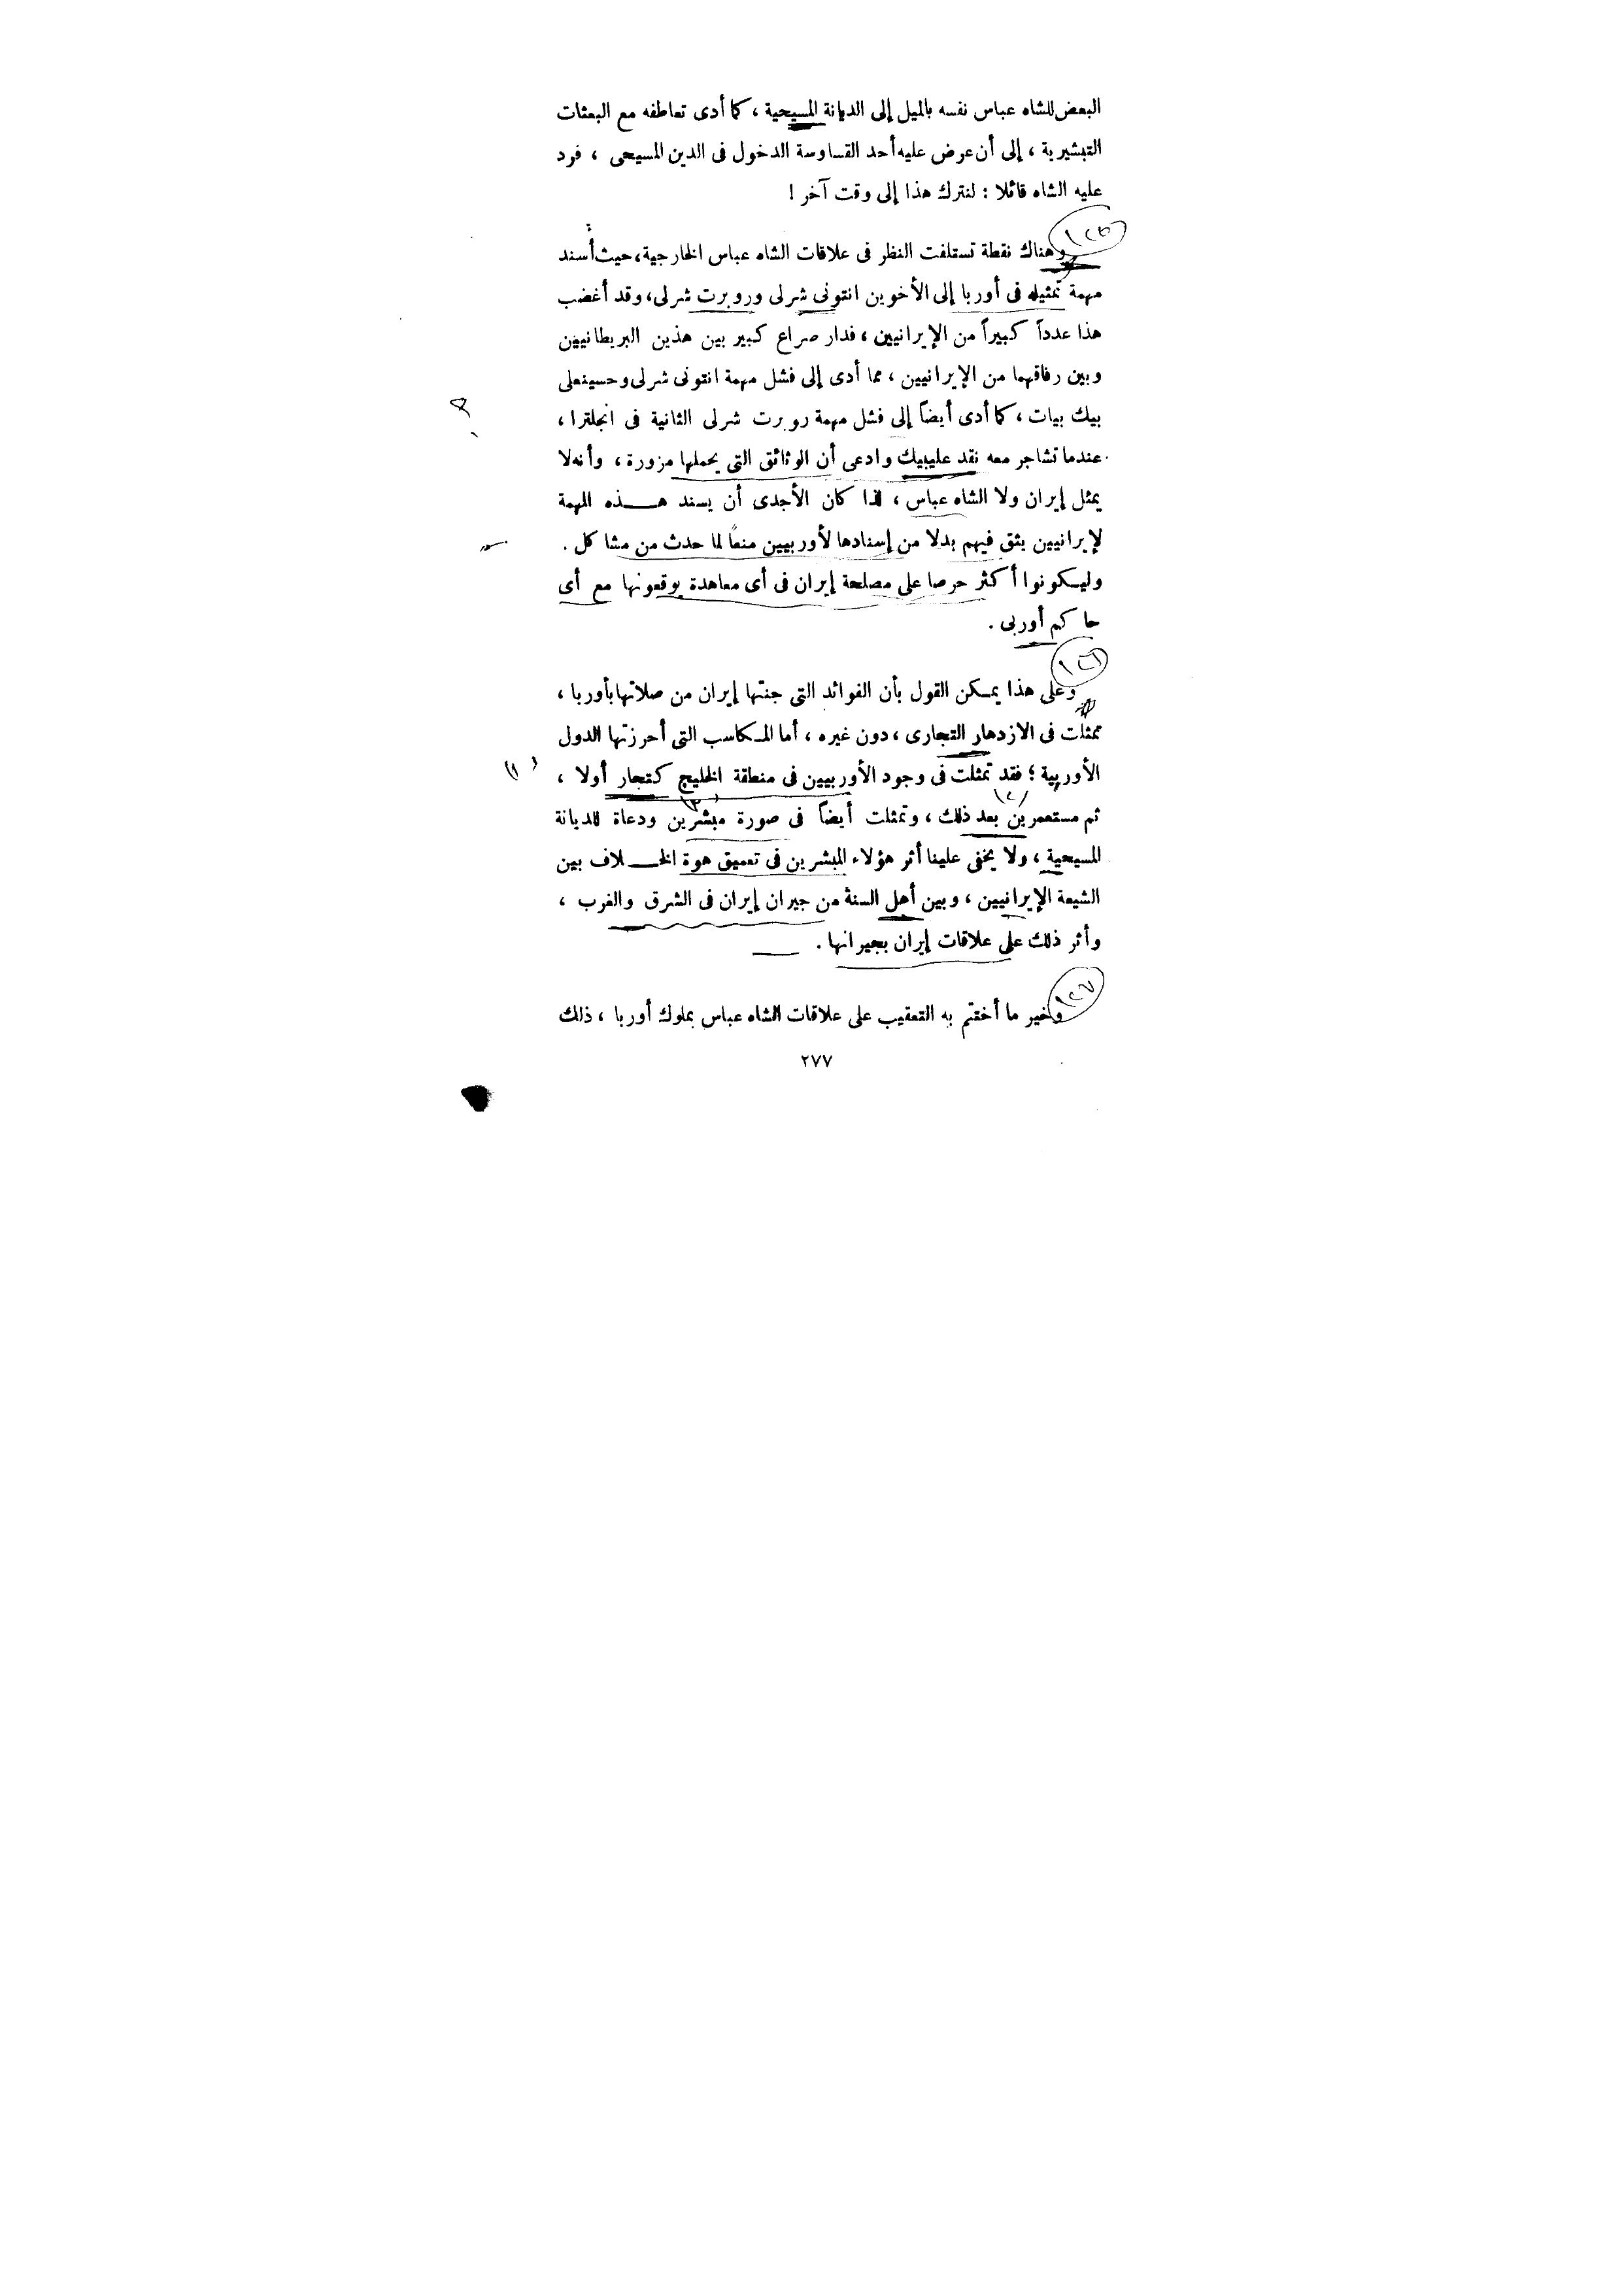 البعض للشاه عباس نفسه بالميل إلى الديانة المسيحية ، كما أدى تعاطفه مع البعثات
التبشيرية ، إلى أن عرض عليه أحد القساوسة الدخول فى الدين المسيحى ، فرد
عليه الشاه قائلا : لنترك هذا إلى وقت آخر !
وهناك نقطة تستلفت النظر فى علاقات الشاه عباس الخارجية ، حيث أسند
مهمة تمثيله فى أوربا إلى الأخوين انتونى شرلى وروبرت شرلى ، وقد أغضب
هذا عدداً كبيراً من الإيرانيين ، فدار صراع كبير بين هذين البريطانيين
وبين رفاقهما من الإيرانيين ، مما أدى إلى فشل مهمة انتونى شرلى وحسينعلى
بيك بيات ، كما أدى أيضاً إلى فشل مهمة روبرت شرلى الثانية فى انجلترا ،
عندما تشاجر معه نقد عليبيك وادعى أن الوثائق التى يحملها مزورة ، وأنه لا
يمثل إيران ولا الشاه عباس ، لذا كان الأجدى أن يسند هذه المهمة
لإيرانيين يثق فيهم بدلا من إسنادها لأوربيين منعاً لما حدث من مشاكل .
وليكونوا أكثر حرصا على مصلحة إيران فى أى معاهدة يوقعونها مع أى
حاكم أوربى .
وعلى هذا يمكن القول بأن الفوائد التى جنتها إيران من صلاتها بأوربا ،
تمثلت فى الازدهار التجارى ، دون غيره ، أما المكاسب التى أحرزتها الدول
الأوربية ؛ فقد تمثلت فى وجود الأوربيين فى منطقة الخليج كتجار أولا ،
ثم مستعمرين بعد ذلك ، وتمثلت أيضاً فى صورة مبشرين ودعاة للديانة
المسيحية ، ولا يخفى علينا أثر هؤلاء المبشرين فى تعميق هوة الخلاف بين
الشيعة الإيرانيين ، وبين أهل السنة من جيران إيران فى الشرق والغرب ،
وأثر ذلك على علاقات إيران بجيرانها .
وخير ما أختتم به التعقيب على علاقات الشاه عباس بملوك أوربا ، ذلك
٢٧٧